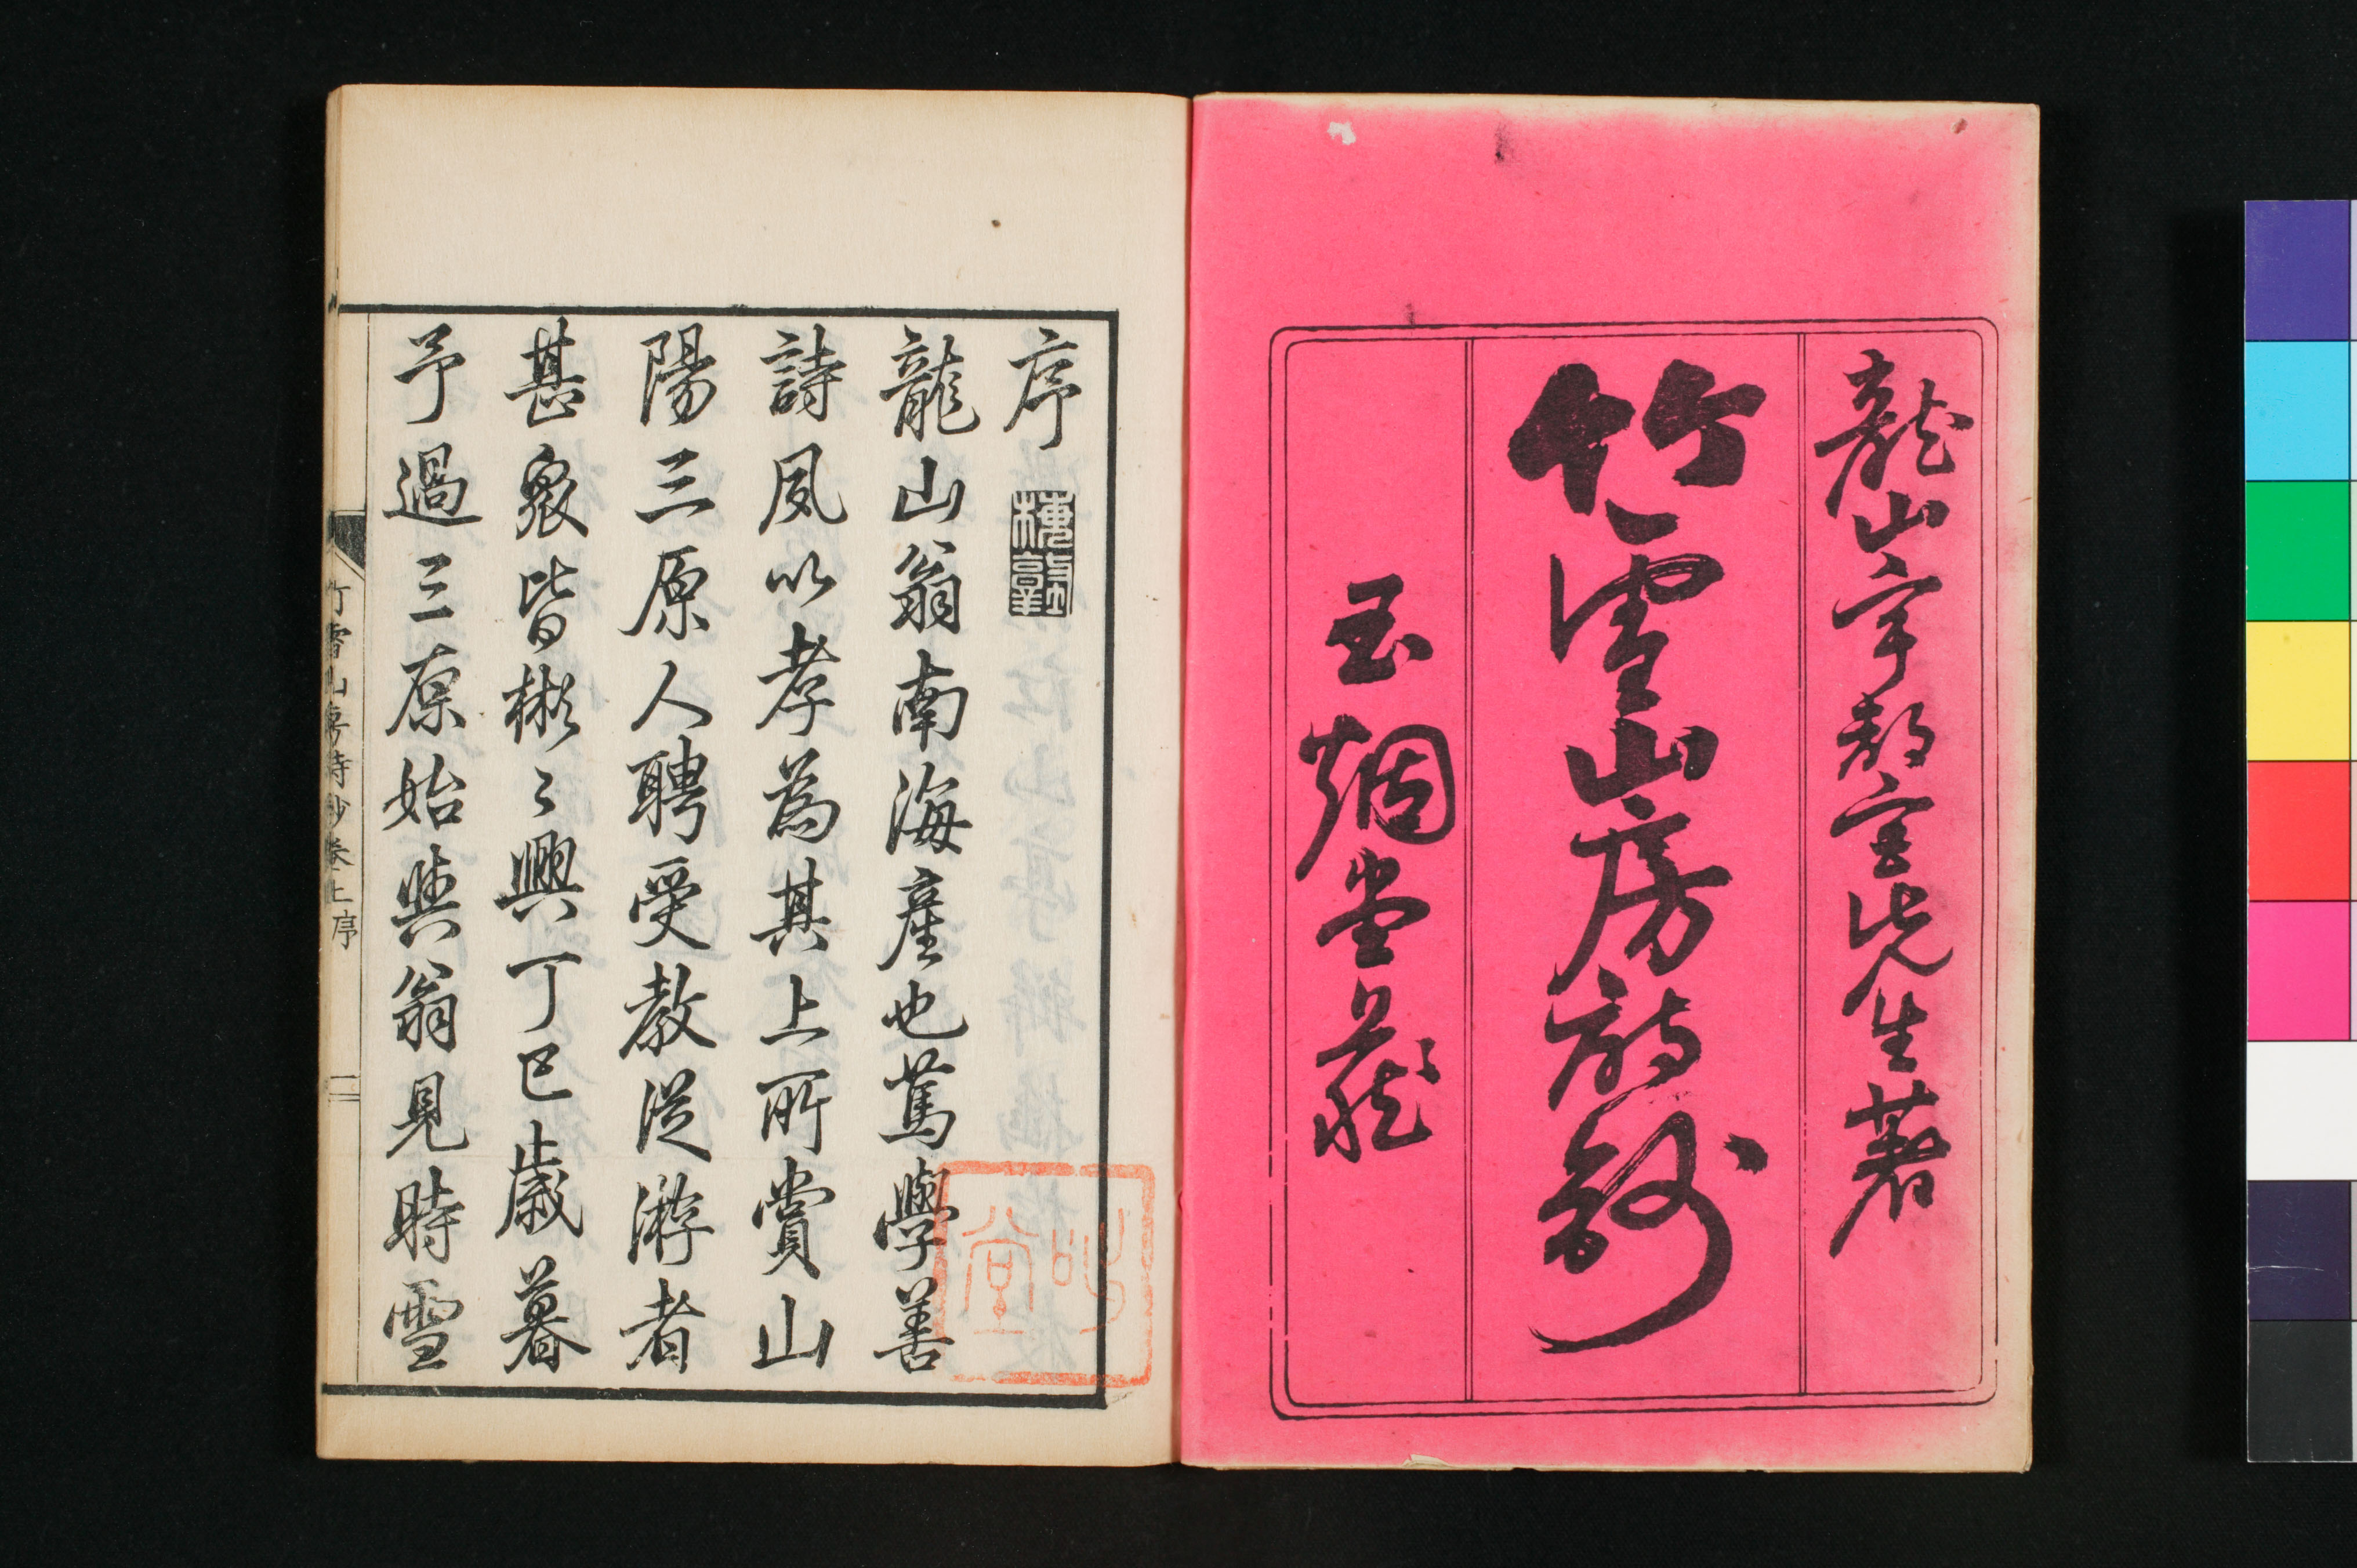 龍山宇都宮先生著
竹雪山房詩鈔
玉烟堂藏
序
龍山翁南海産也篤學善
詩夙以孝為其上所賞山
陽三原人聘受教從游者
甚衆皆彬〻興丁巳歳暮
予過三原始與翁見時雪
竹雪山房詩鈔卷上序